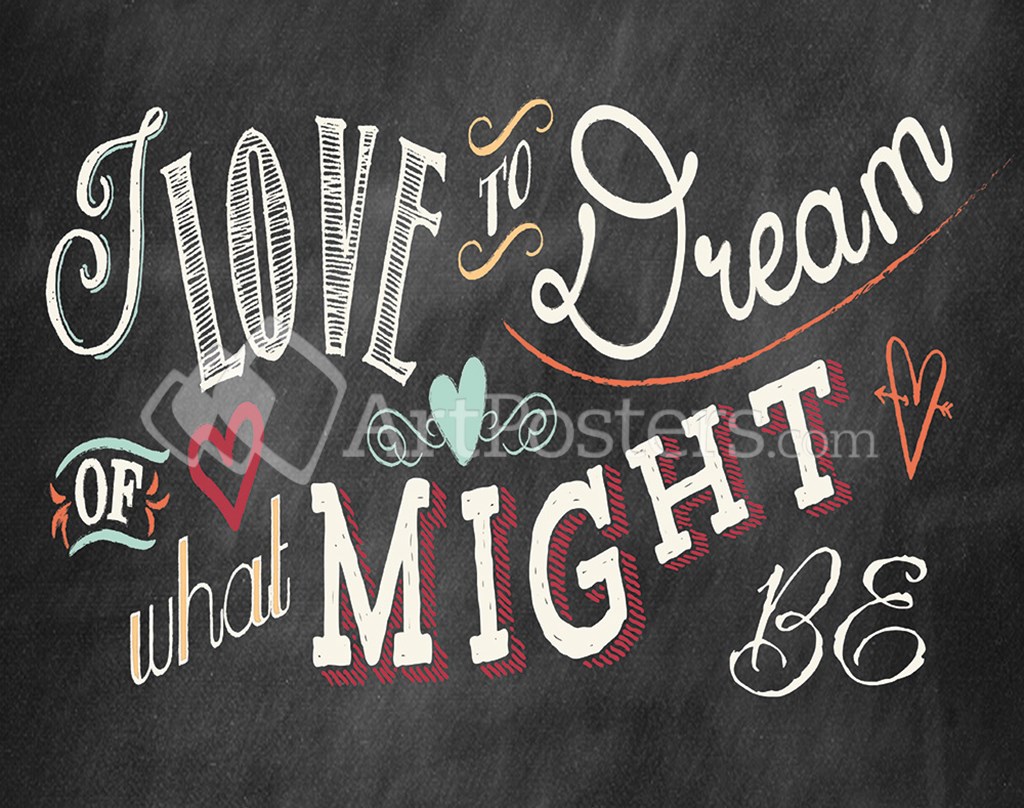 I LOVE TO Dream
OF what MIGHT BE
ArtPosters.com